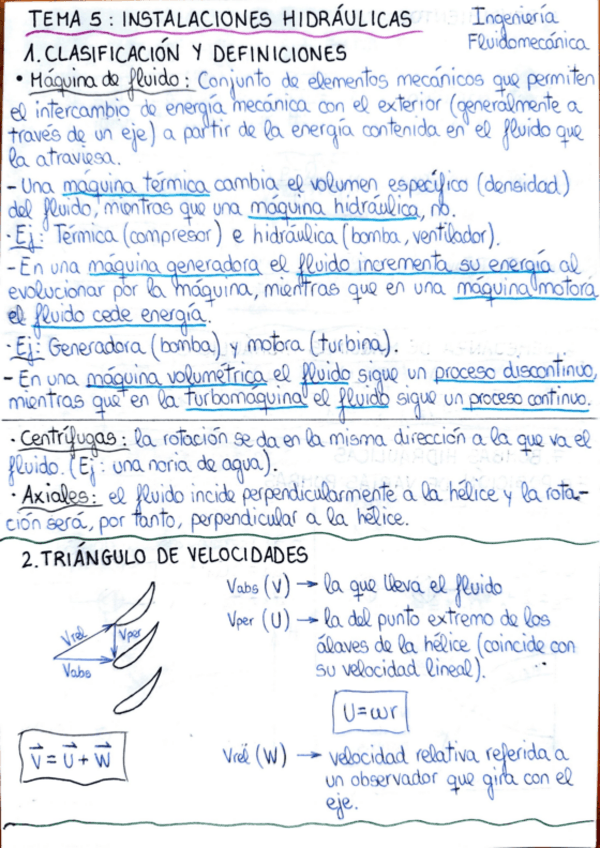 TEMA 5: INSTALACIONES HIDRÁULICAS
Ingeniería
Fluidomecánica
1. CLASIFICACIÓN Y DEFINICIONES
• Máquina de fluido: Conjunto de elementos mecánicos que permiten
el intercambio de energía mecánica con el exterior (generalmente a
través de un eje) a partir de la energía contenida en el fluido que
la atraviesa.
- Una máquina térmica cambia el volumen específico (densidad)
del fluido, mientras que una máquina hidráulica, no.
· Ej: Térmica (compresor) e hidráulica (bomba, ventilador).
- En una máquina generadora el fluido incrementa su energía al
evolucionar por la máquina, mientras que en una máquina motora
el fluido cede energía.
· Ej: Generadora (bomba) y motora (turbina).
- En una máquina volumétrica el fluido sigue un proceso discontinuo,
mientras que en la turbomáquina el fluido sigue un proceso continuo.
· Centrífugas: la rotación se da en la misma dirección a la que va el
fluido. (Ej: una noria de agua).
· Axiales: el fluido incide perpendicularmente a la hélice y la rota-
ción será, por tanto, perpendicular a la hélice.
2. TRIÁNGULO DE VELOCIDADES
Vrel
Vper
Vabs
Vabs (V) → la que lleva el fluido
Vper (U) → la del punto extremo de los
álaves de la hélice (coincide con
su velocidad lineal).
U = ωr
V⃗ = U⃗ + W⃗
Vrel (W) → velocidad relativa referida a
un observador que gira con el
eje.